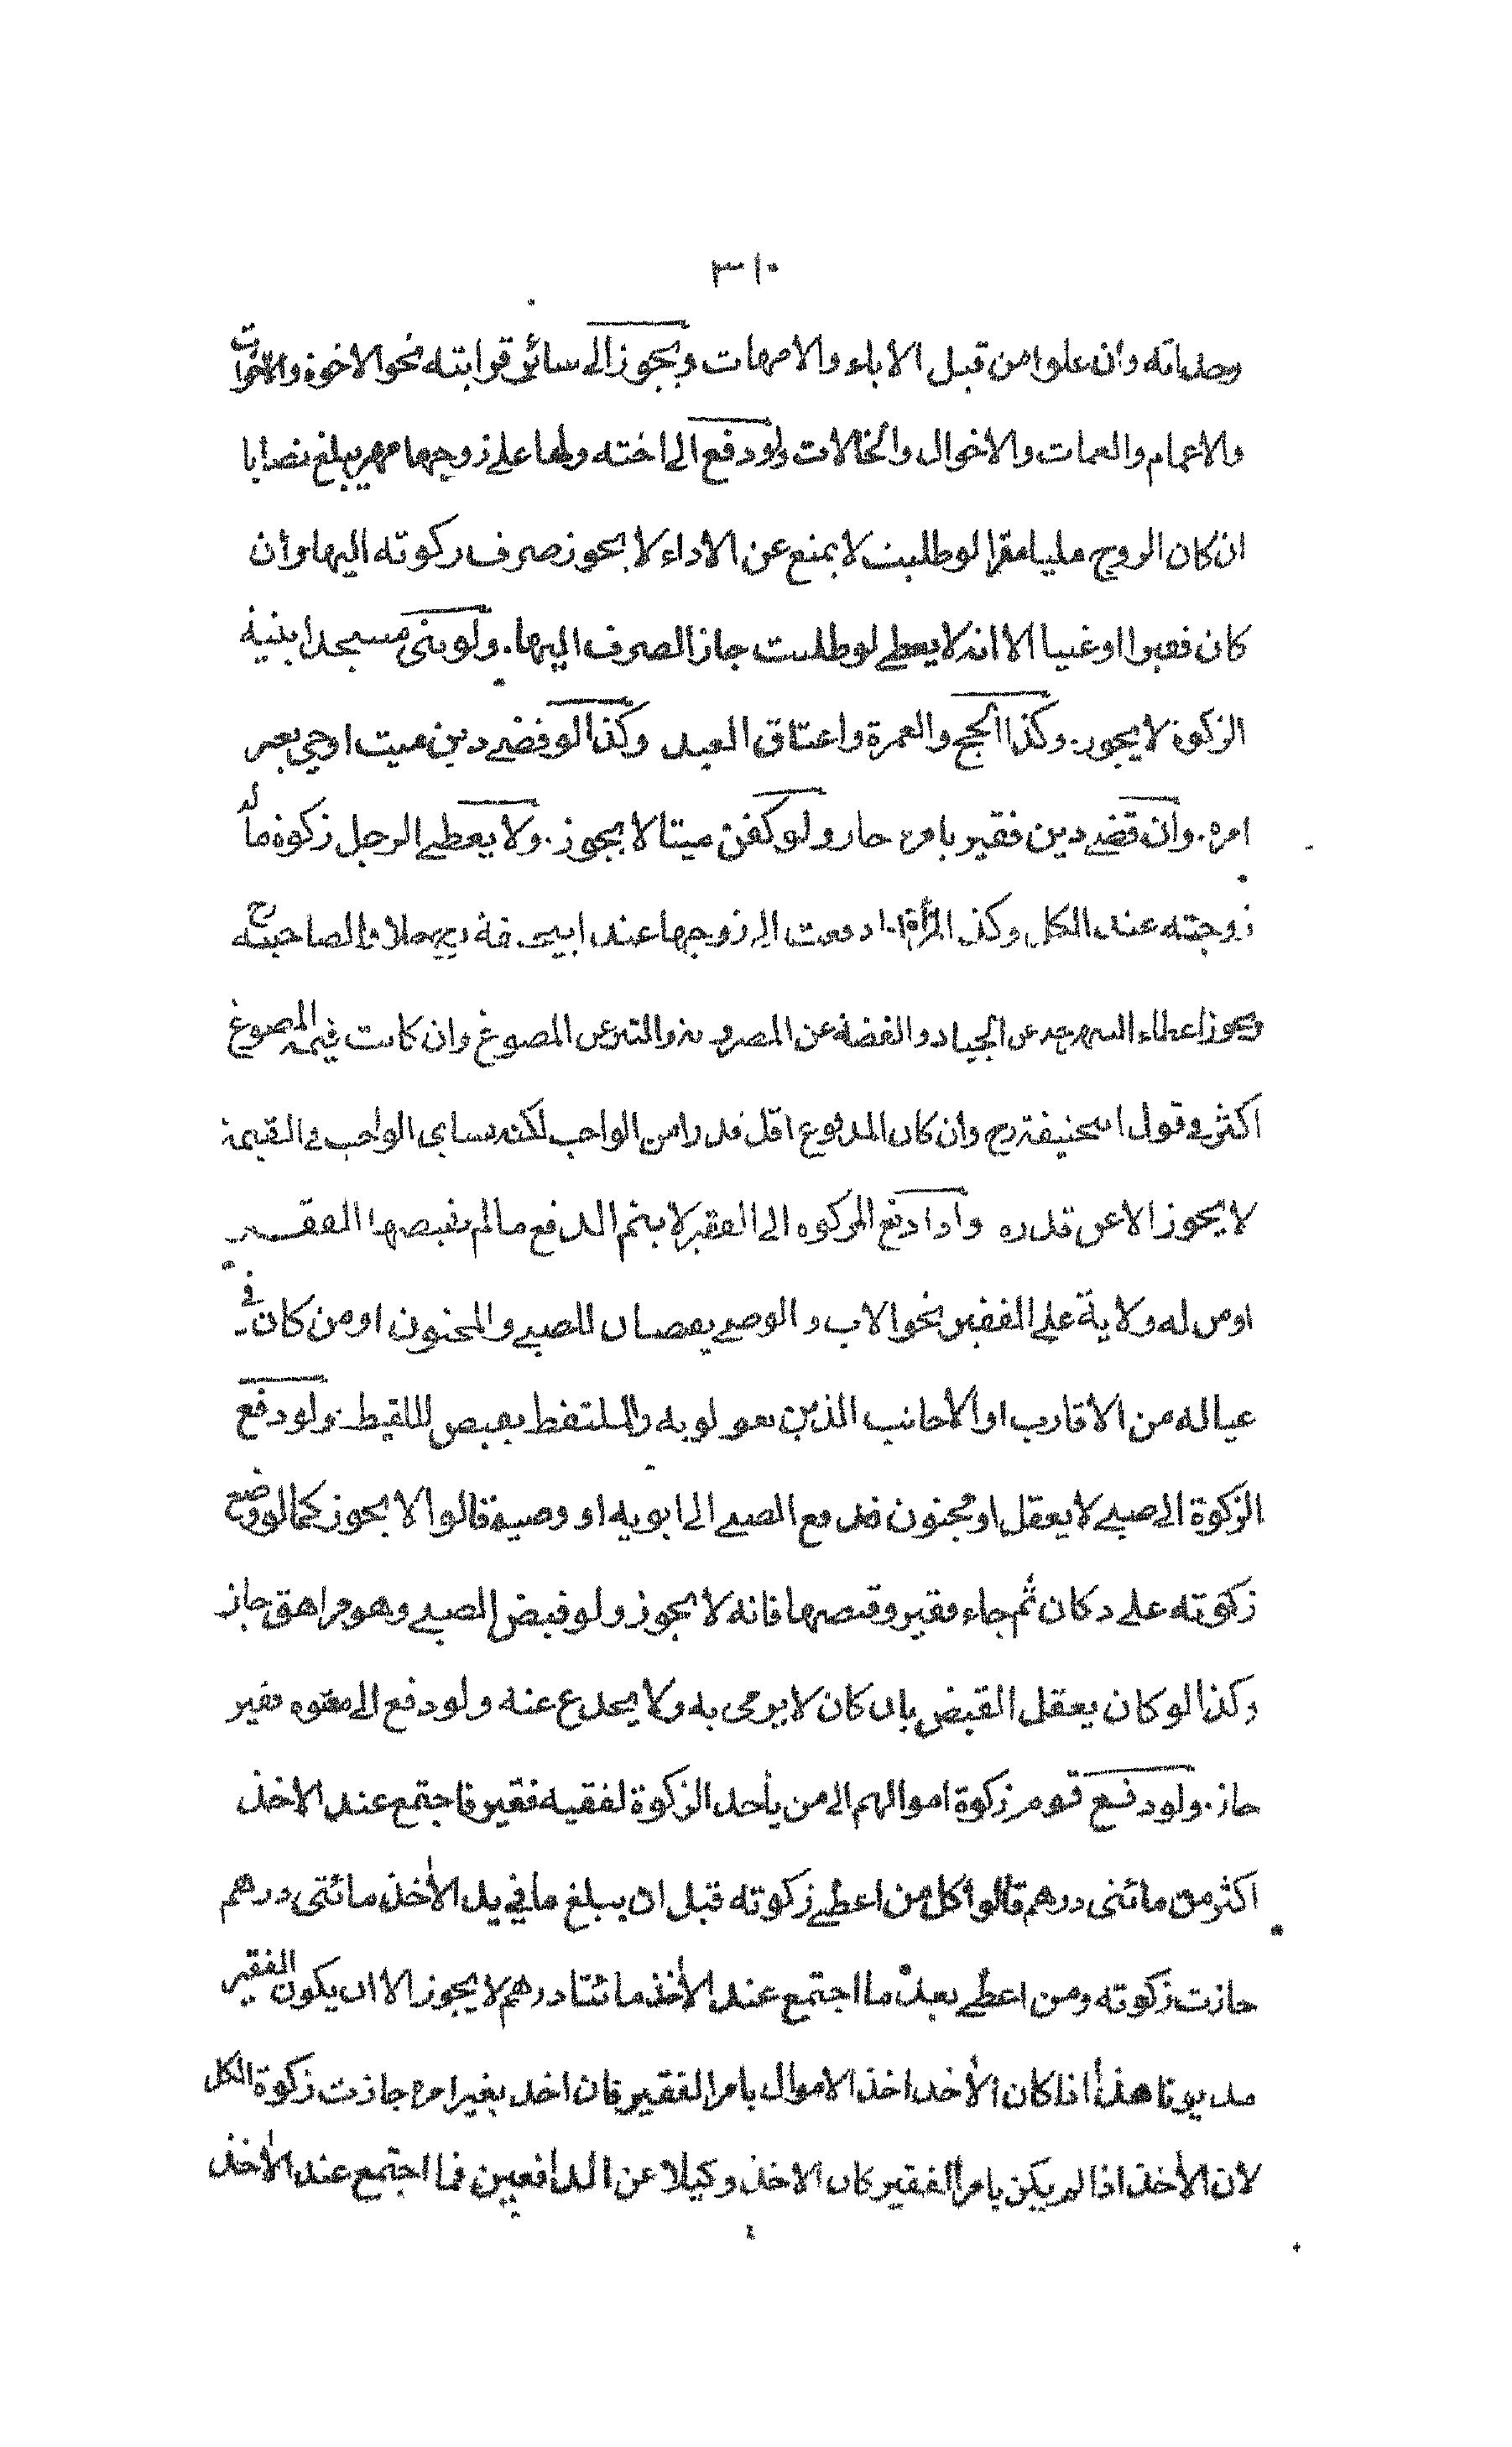 ٣١٠
وجداته وان علوا من قبل الاباء والامهات ويجوز الى سائر قرابته نحو الاخوة والاخوات
والاعمام والعمات والاخوال والخالات ولو دفع الى اخته ولها على زوجها مهر يبلغ نصابا
ان كان الزوج مليا مقرا لو طلبت لا يمنع عن الاداء لا يجوز صرف زكوته اليها وان
كان فقيرا او غنيا الا انه لا يعطى لو طلبت جاز الصرف اليها. ولو بنى مسجدا بنية
الزكوة لا يجوز. وكذا الحج والعمرة واعتاق العبد وكذا لو قضى دين ميت او حي بغير
امره. وان قضى دين فقير بامره جاز ولو كفن ميتا لا يجوز. ولا يعطى الرجل زكوة ماله
زوجته عند الكل وكذا المرأة اذا دفعت الى زوجها عند ابيحنيفة رح خلافا لصاحبيه رح
ويجوز اعطاء النبهرجة عن الجياد والفضة عن المضروبة والتبر عن المصوغ وان كانت قيمة المصوغ
اكثر في قول ابيحنيفة رح وان كان المدفوع اقل قدرا من الواجب لكنه يساوي الواجب في القيمة
لا يجوز الا عن قدره واذا دفع الزكوة الى الفقير لا يتم الدفع ما لم يقبضها الفقير
او من له ولاية على الفقير نحو الاب والوصي يقبضان للصبي والمجنون او من كان في
عياله من الاقارب او الاجانب الذين يعولونه والملتقط يقبض للقيط. ولو دفع
الزكوة الى صبي لا يعقل او مجنون فدفع الصبي الى ابويه او وصيه قالوا لا يجوز كما لو وضع
زكوته على دكان ثم جاء فقير وقبضها فانه لا يجوز ولو قبض الصبي وهو مراهق جاز
وكذا لو كان يعقل القبض بان كان لا يرمى به ولا يخدع عنه ولو دفع الى معتوه فقير
جاز. ولو دفع قوم زكوة اموالهم الى من يأخذ الزكوة لفقيه فقير فاجتمع عند الاخذ
اكثر من مائتى درهم قالوا كل من اعطى زكوته قبل ان يبلغ ما في يد الاخذ مائتى درهم
جازت زكوته ومن اعطى بعد ما اجتمع عند الاخذ مائتا درهم لا يجوز الا ان يكون الفقير
مديونا هذا اذا كان الاخذ اخذ الاموال بامر الفقير فان اخذ بغير امره جازت زكوة الكل
لان الاخذ اذا لم يكن يامر الفقير كان الاخذ وكيلا عن الدافعين فما اجتمع عند الاخذ